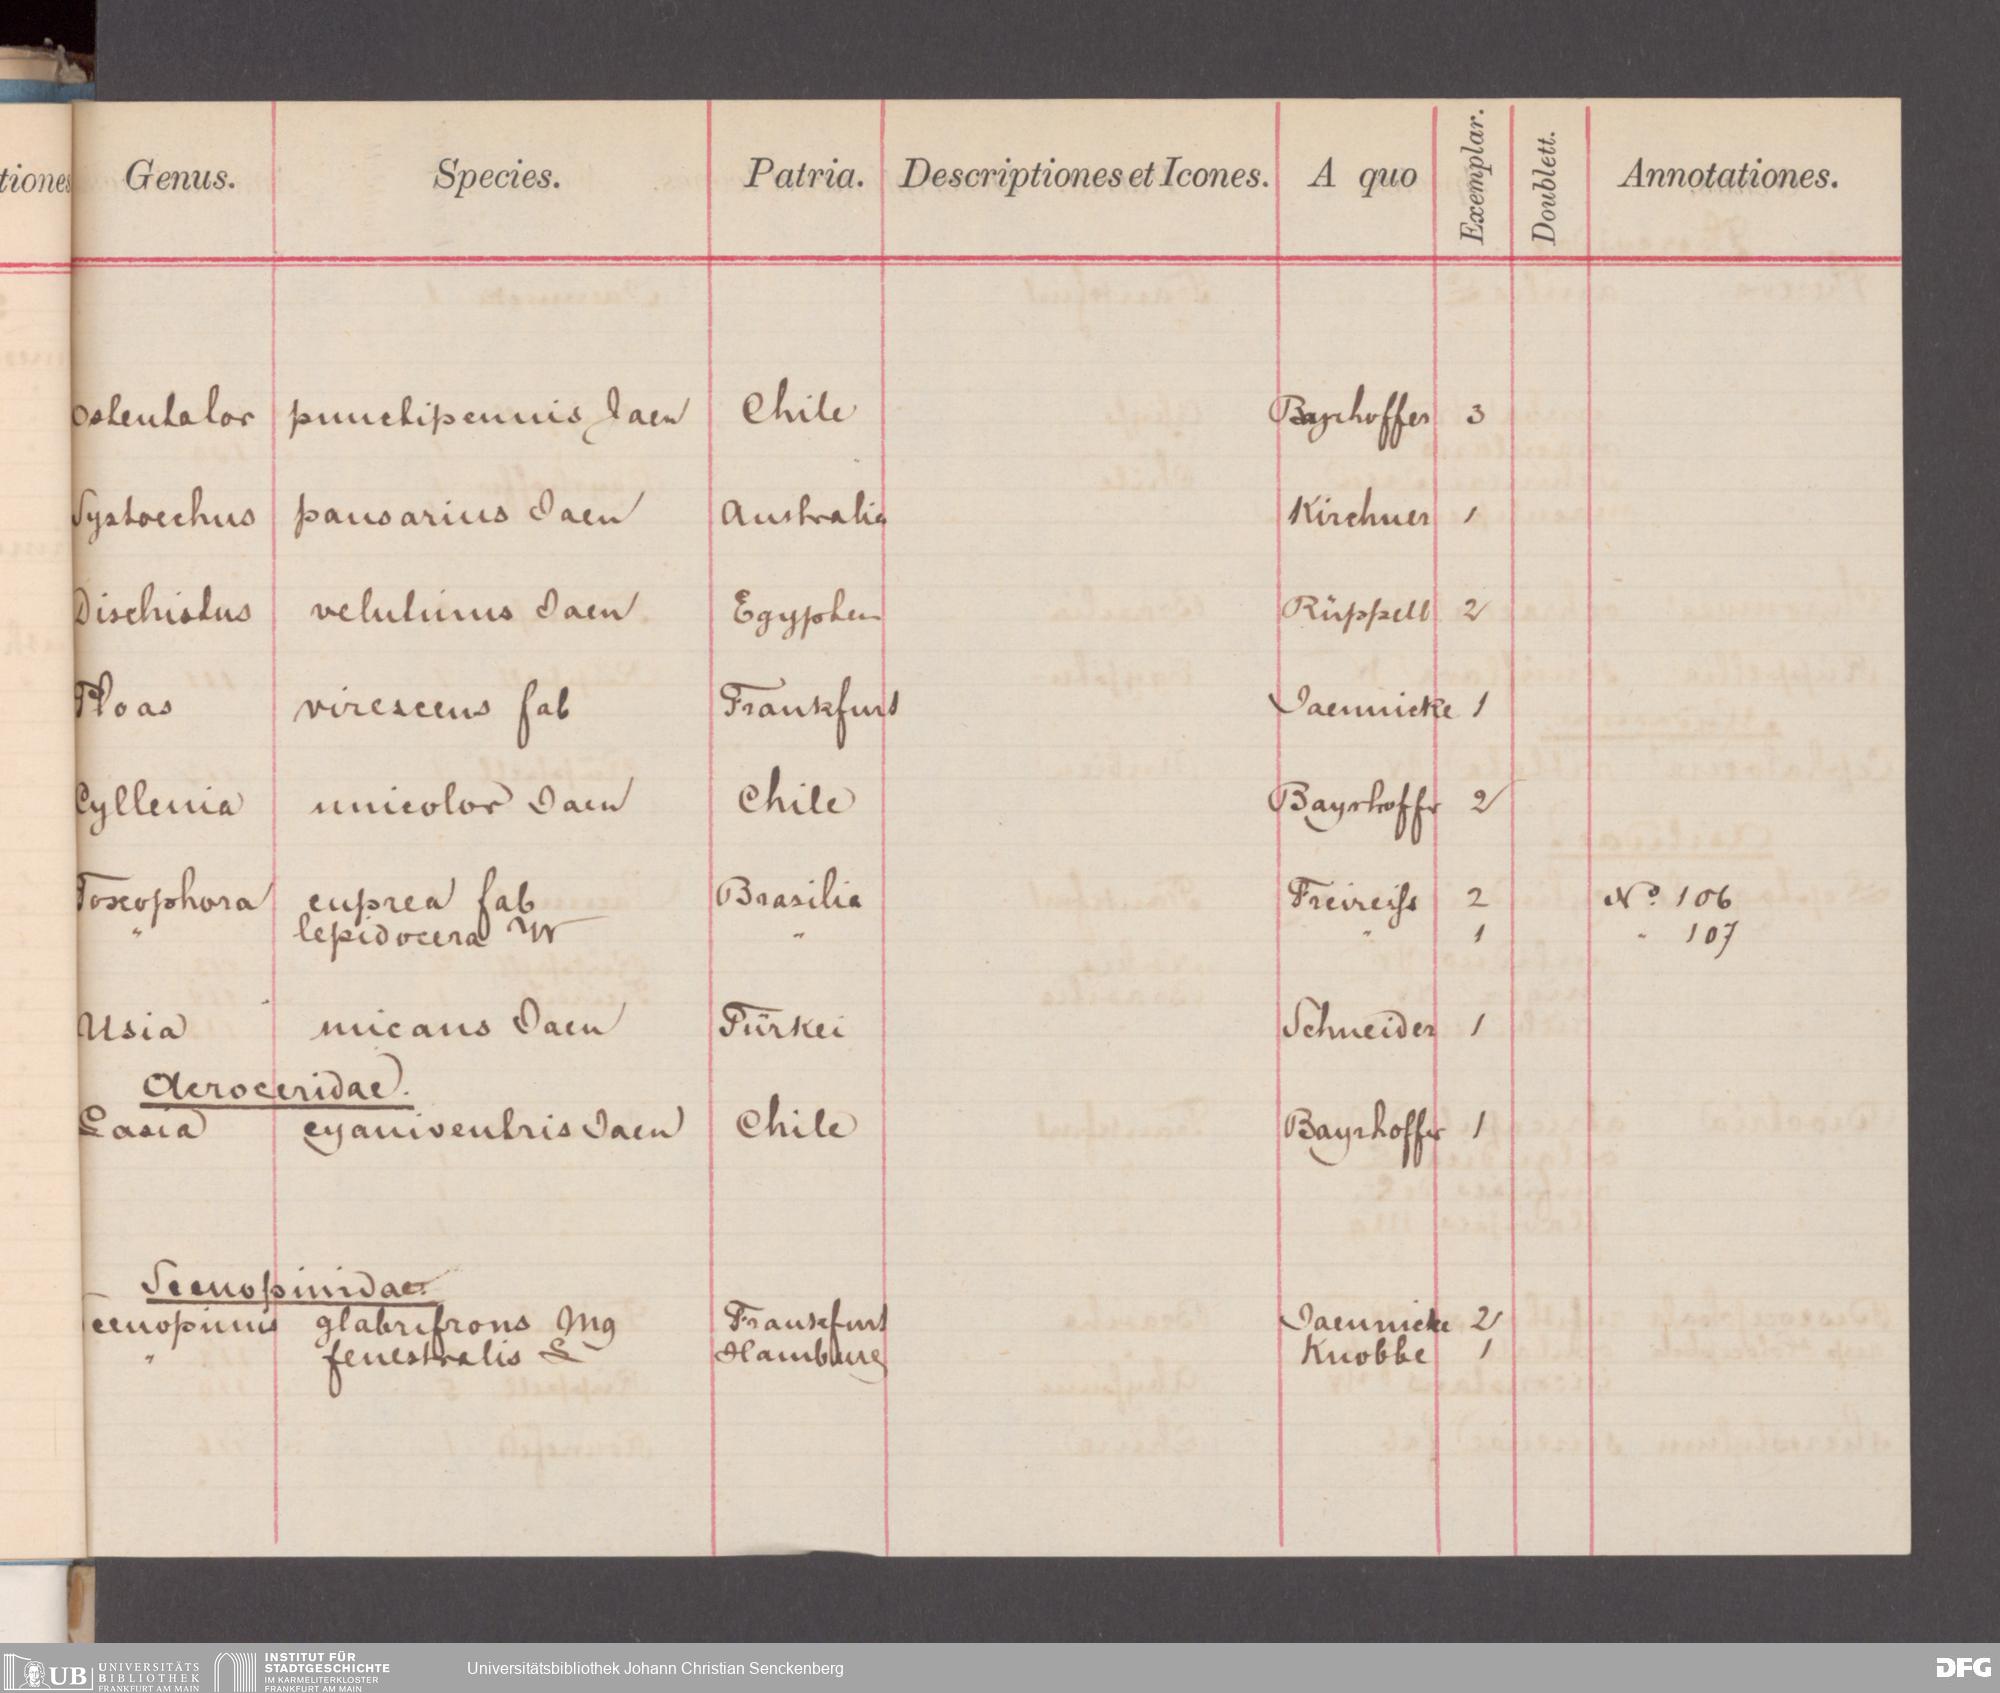 tiones
Genus. Species. Patria. Descriptiones et Icones. A quo Exemplar. Doublett. Annotationes.
Ostentator punctipennis Jaen Chile Bayrhoffer 3
Systoechus pausarius Jaen Australia Kirchner 1
Dischistus velutinus Jaen Egypten Rüppell 2
Ploas virescens fab Frankfurt Jaennicke 1
Cyllenia unicolor Jaen Chile Bayrhoffer 2
Toxophora cuprea fab Brasilia Freireiss 2 No. 106
" lepidocera W " " 1 " 107
Usia micans Jaen Türkei Schneider 1
Acroceridae.
Lasia cyaniventris Jaen Chile Bayrhoffer 1
Scenopinidae.
Scenopinus glabrifrons Mg Frankfurt Jaennicke 2
" fenestralis L Hamburg Knobbe 1
UB UNIVERSITÄTS BIBLIOTHEK FRANKFURT AM MAIN
INSTITUT FÜR STADTGESCHICHTE IM KARMELITERKLOSTER FRANKFURT AM MAIN
Universitätsbibliothek Johann Christian Senckenberg
DFG